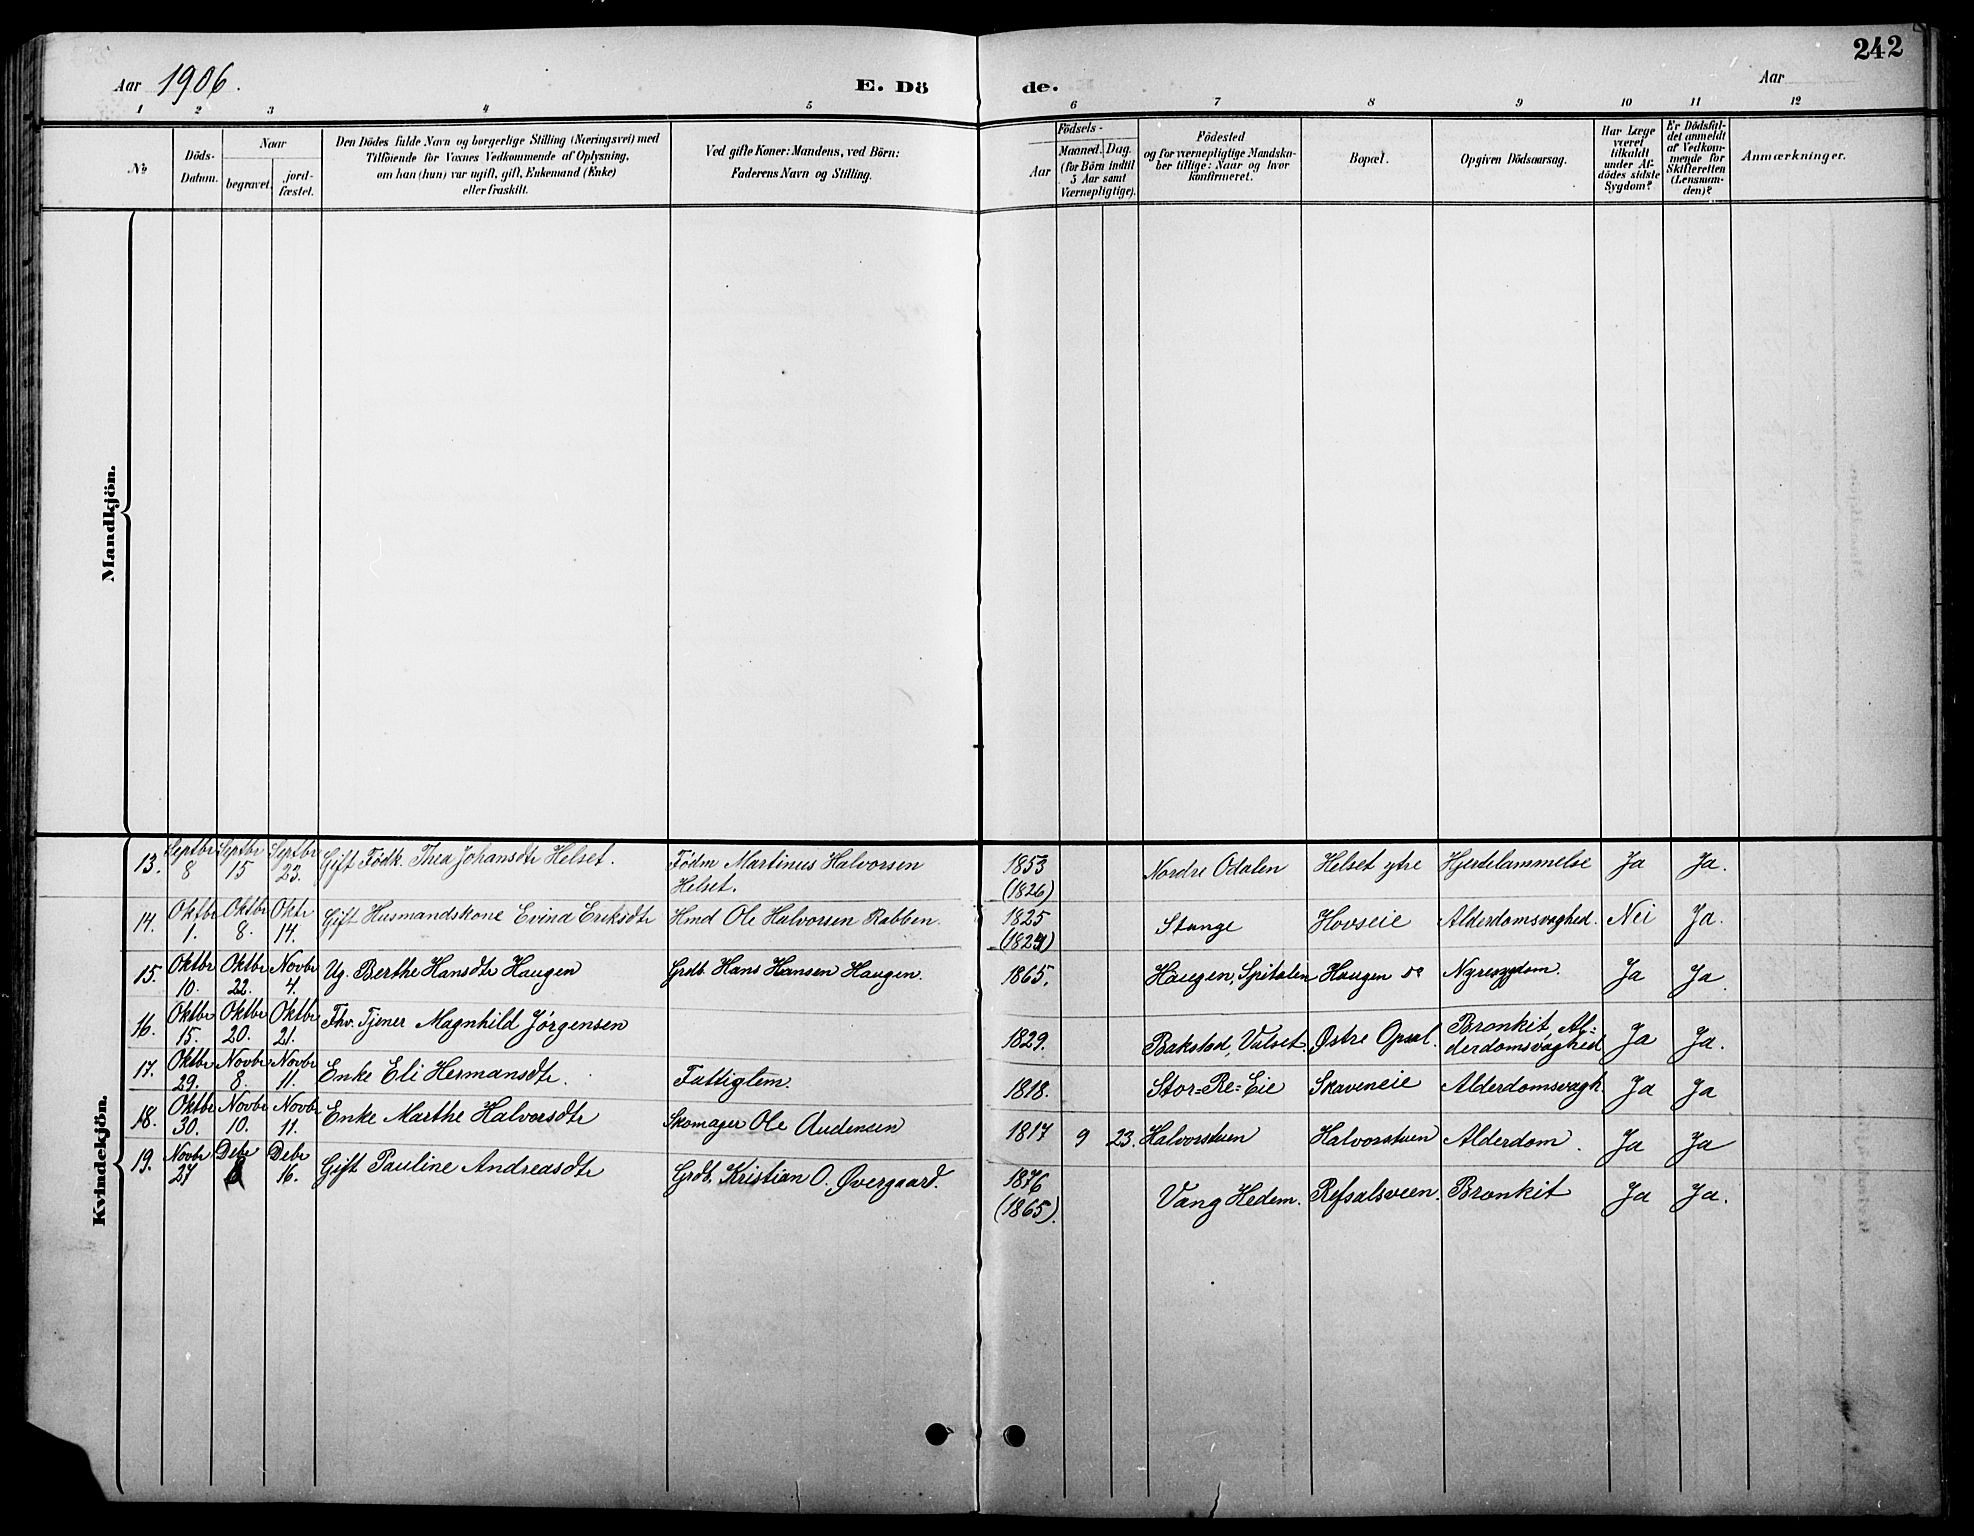 242
Aar 1906.
E. Dö
de.
Aar
1 2 3 4 5 6 7 8 9 10 11 12
No.
Döds-Datum.
Naar
begravet.
jordfæstet.
Den Dödes fulde Navn og borgerlige Stilling (Næringsvei) med
Tilföiende for Voxnes Vedkommende af Oplysning,
om han (hun) var ugift, gift, Enkemand (Enke)
eller fraskilt.
Ved gifte Koner: Mandens, ved Börn:
Faderens Navn og Stilling.
Födsels-
Aar
Maaned. Dag.
(for Börn indtil
5 Aar samt
Værnepligtige).
Födested
og for værnepligtige Mandskaber tillige: Naar og hvor
konfirmeret.
Bopæl.
Opgiven Dödsaarsag.
Har Læge
været
tilkaldt
under Afdödes sidste
Sygdom?
Er Dödsfaldet anmeldt
af Vedkommende for
Skifteretten
(Lensmanden)?
Anmærkninger.
Mandkjön.
Kvindekjön.
13. Septbr 8 Septbr 15 Septbr 23. Gift Födk. Thea Johansdtr Helset. Födm Martinus Halvorsen Helset. 1853 (1826) Nordre Odalen Helset ytre Hjertelammelse Ja Ja.
14. Oktbr 1. Oktbr 8. Oktr 14. Gift Husmandskone Evina Eriksdtr Hmd Ole Halvorsen Rabben. 1825 (1824) Stange Hovseie Alderdomsvaghed. Nei Ja.
15. Oktbr 10. Oktbr 22. Novbr 4. Ug. Berthe Hansdtr Haugen Grdb. Hans Hansen Haugen. 1865. Haugen, Spitalen Haugen Nyresygdom. Ja Ja.
16. Oktbr 15. Oktbr 20. Oktbr 21. Fhv. Tjener Magnhild Jørgensen 1829. Bakstad, Valset. Østre Opsal. Bronkit, Alderdomsvaghed Ja Ja.
17. Oktbr 29. Novbr 8. Novbr 11. Enke Eli Hermansdtr. Fattiglem. 1818. Stor=Re=Eie Skaveneie Alderdomsvagh. Ja Ja
18. Oktbr 30. Novbr 10. Novbr 11. Enke Marthe Halvorsdtr Skomager Ole Audensen 1817 9 23. Halvorstuen Halvorstuen Alderdom. Ja Ja
19. Novbr 27 Debr 8 Debr 16. Gift Pauline Andreasdtr Grdb. Kristian O. Øvergaard. 1876 (1865). Vang Hedem. Refsalsveen. Bronkit Ja Ja.